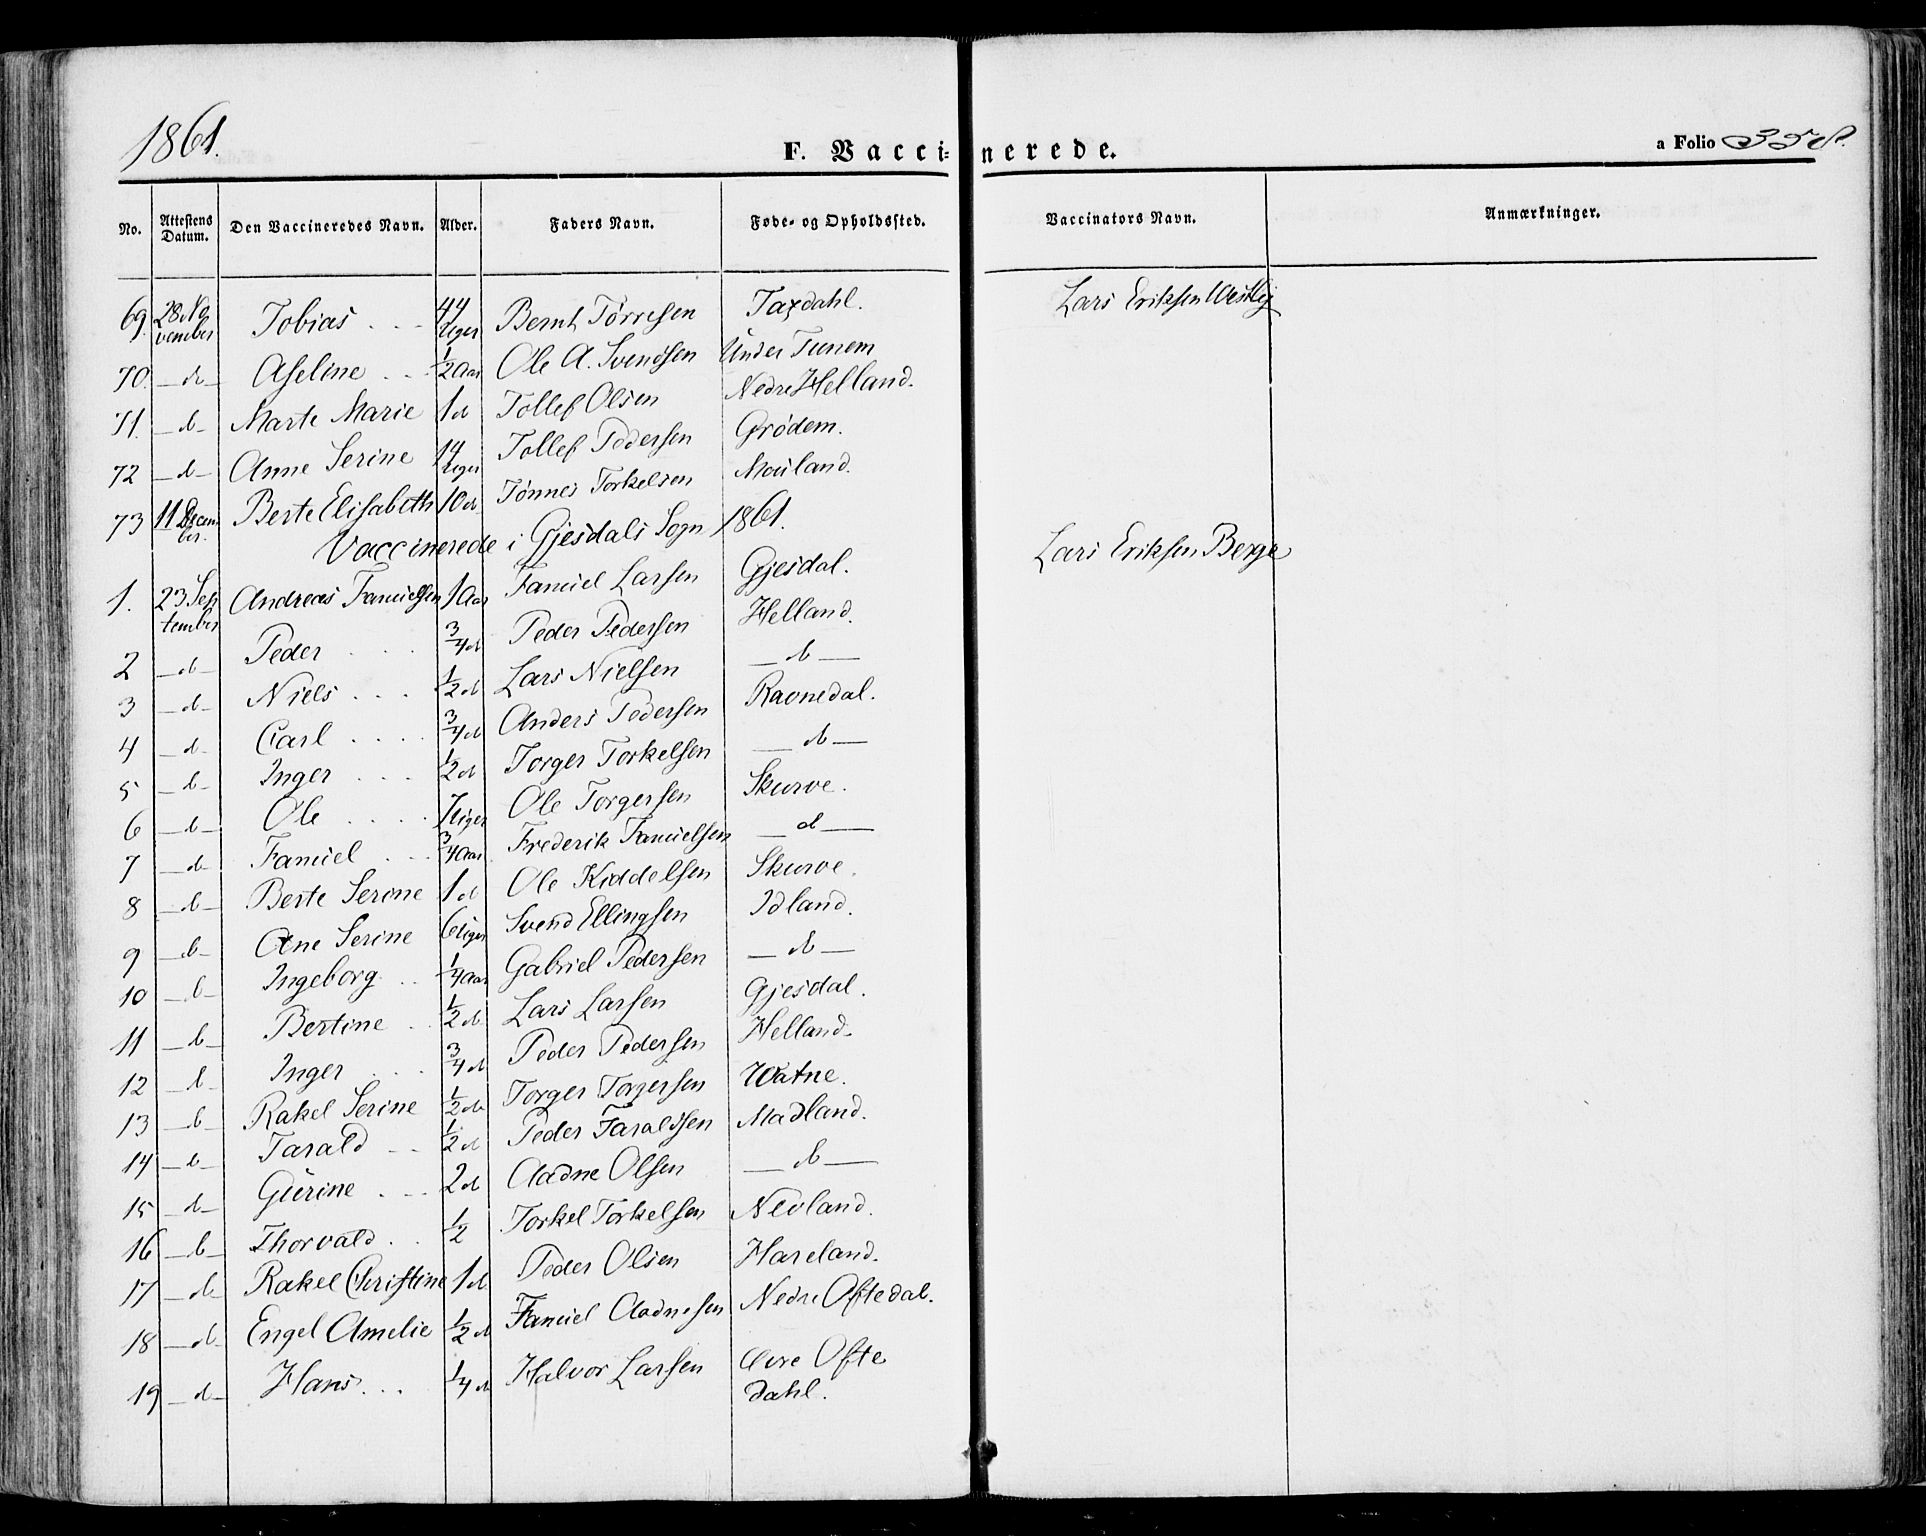 1861.
F. Vaccinerede.
a Folio 358.
No. Attestens Datum. Den Vaccineredes Navn. Alder. Faders Navn. Føde- og Opholdssted. Vaccinators Navn. Anmærkninger.
69. 28 November Tobias . . . 44 Uger Bernt Tørresen Taxdahl. Lars Eriksen Westlij
70. — d — Aseline . . . 1/2 Aar Ole A. Svendsen Under Tunem
71. — d — Marte Marie 1 d Tollef Olsen Nedre Helland.
72 — d — Anne Serine 14 Uger Tollef Pedersen Grødem.
73 11 December. Berte Elisabeth 10 d Tønnes Torkelsen Mauland.
Vaccinerede i Gjesdals Sogn 1861.
1. 23 September Andreas Samuelsen 1 Aar Samuel Larsen Gjesdal. Lars Eriksen Berge
2 — d — Peder . . . 3/4 d Peder Pedersen Helland.
3 — d — Niels . . . 1/2 d Lars Nielsen — d —
4 — d — Carl . . . . 3/4 d Anders Pedersen Ravnedal.
5 — d — Inger . . . 1/2 d Torger Torkelsen — d —
6 — d — Ole . . . . 7 Uger Ole Torgersen Skurve.
7 — d — Samuel . . . 3/4 Aar Frederik Samuelsen — d —
8 — d — Berte Serine 1 d Ole Kiddelsen Skurve.
9 — d — Ane Serine 6 Uger Svend Ellingsen Idland.
10 — d — Ingeborg . . 1/4 Aar Gabriel Pedersen — d —
11 — d — Bertine . . 1/2 d Lars Larsen Gjesdal.
12 — d — Inger . . . 3/4 d Peder Pedersen Helland.
13 — d — Rakel Serine 1/2 d Torger Torgersen Watne.
14 — d — Tarald . . 1/2 d Peder Taraldsen Madland.
15 — d — Gurine . . . 2 d Aadne Olsen — d —
16 — d — Thorvald . . 1/2 Torkel Torkelsen Nevland.
17 — d — Rakel Christine 1 d Peder Olsen Hareland.
18 — d — Engel Amelie 1/2 d Samuel Aadnesen Nedre Oftedal.
19 — d — Hans . . . 1/4 d Halvor Larsen Øvre Ofte
dahl.